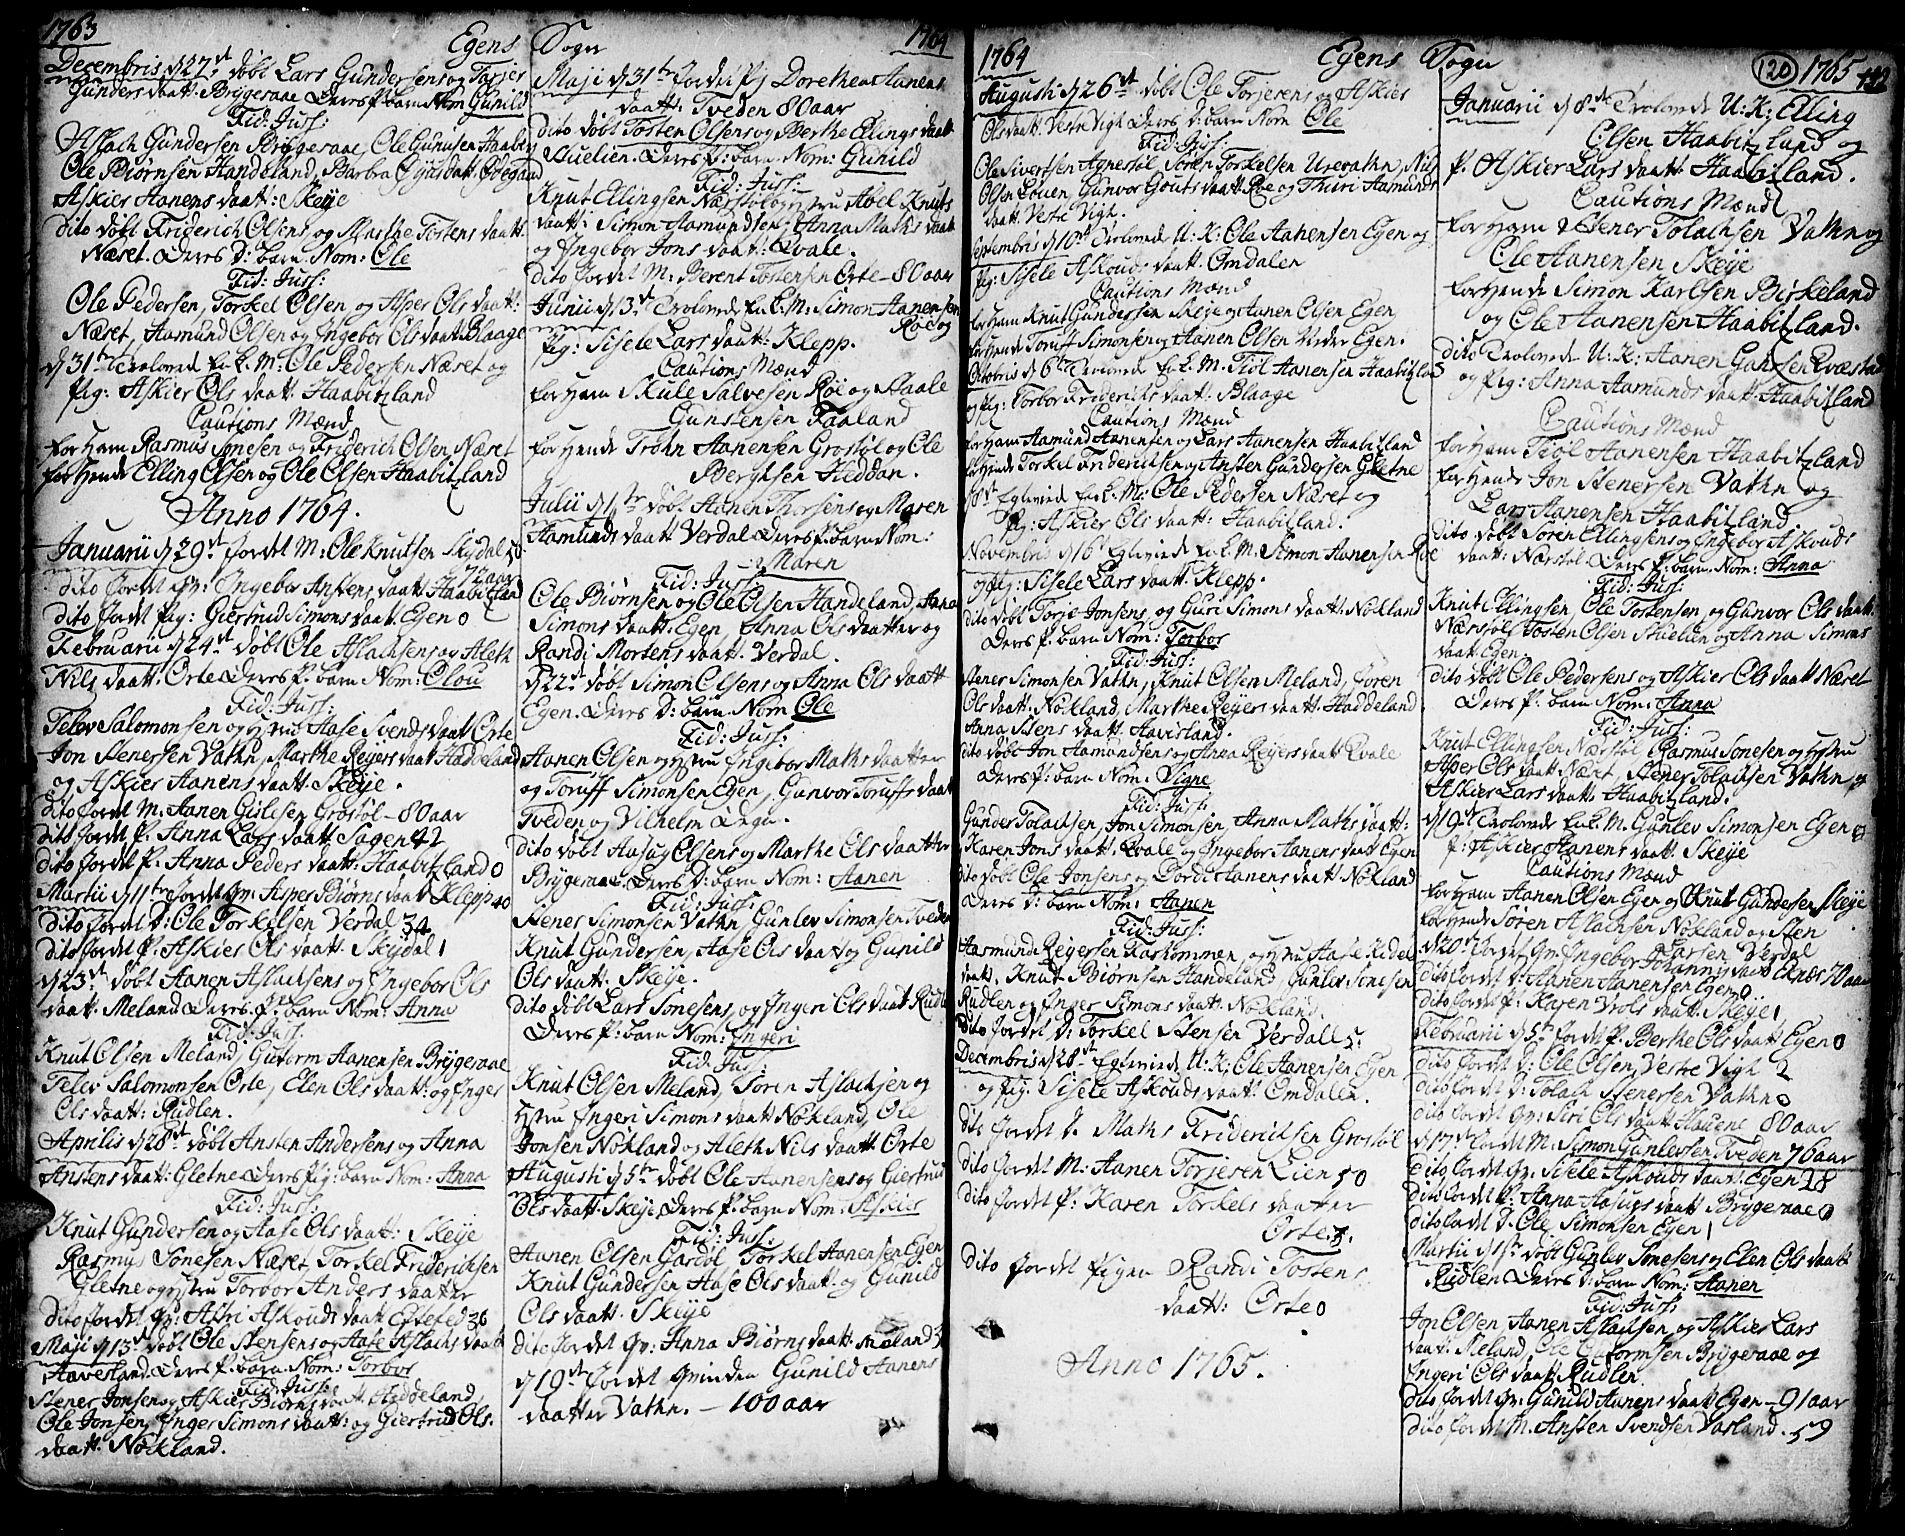 1763
Egens Sogn
1764
Decembris d 27de døbt Lars Gundersens og Torjer
Gunders daatt: Brÿgeraae Deres P. barn Nom Gunild
Fid: Juss:
Aslach Gundersen Brÿgeraae, Ole Gunusen Haabitz
Ole Biørnsen Handeland, Barbra daatt: Ødegaard
Askier Aanens daatt: Skeÿe
dito døbt Friderich Olsens og Marthe Tostens daatt:
Næset. Deres D: barn Nom: Ole
Fid: Juss:
Ole Pedersen, Torkel Olsen og Asper Ols daatt:
Næset, Aamund Olsen og Ingebor Ols daatt: Blaage
d 31te Trolovede E.k. M: Ole Pedersen Næset og
Pig: Askier Ols daatt: Haabitzland
Cautions Mænd
for Ham Rasmus Sonesen og Friderich Olsen Næset
for Hende Elling Olsen og Ole Olsen Haabitzland
Anno 1764.
Januarii d 29de Jordet M: Ole Knutsen Skÿdal 50
72 aar
dito Jordet Qv: Ingebor Anstens daatt: Haabitzland
dito Jordet Pig: Giertrud Simons daatt: Egen 0
Februarii d 24de døbt Ole Aslachsens og Aleth
Nils daatt: Orte Deres P. barn Nom: Olou
Fid: Juss:
Telev Salomonsen og Hustru Aase Svends daatt Orte
Jon Stenersen Vathn, Marthe Reÿers daatt Haddeland
og Askier Aanens daatt: Skeÿe.
dito Jordet M. Aanen Gislesen Grostøl - 80 aar
dito Jordet P. Anna Lars daatt: Sagen 42
dito Jordet P. Anna Peders daatt: Haabitzland 0
Martii d 11te Jordet Qv: Asper Biørns daatt Klepp 40
dito Jordet D: Ole Torkelsen Verdal 34
dito Jordet P. Askier Ols daatt: Skÿdal 1
d 23de døbt Aanen Aslachsens og Ingebor Ols
daatt: Meland Deres P. barn Nom: Anna
Fid: Juss:
Knut Olsen Meland, Gutorm Aanensen Brÿgeraae
Telev Salomonsen Orte, Elen Ols daatt: og Inger
Ols daatt: Rudlen.
Aprilis d 28de døbt Ansten Andersens og Anna
Anstens daatt: Gletne Deres Pig: barn Nom: Anna
Fid: Juss:
Knut Gundersen og Aase Ols daatt: Skeÿe
Rasmus Sonesen Næset, Torkel Frideriksen
Gletne og Hustru Torbor Anders daatter
dito Jordet Qv: Astri Askouds daatt: Eftested 36
Maji d 13de døbt Ole Stensens og Aase Aslachs daatt
Aavesland. Deres P. barn Nom: Torbor
Fid: Juss:
Stener Jonsen og Askier Biørns daatt Haddeland
Ole Jonsen, Inger Simons daatt: og Giertrud Ols
daatt. Nockland.
Maji d 31te Jordet Pig Dorethea Aanens
daatt: Tveden 80 aar
dito døbt Tosten Olsens og Berthe Ellings daatt
Huelien. Deres P: barn Nom: Gunild
Fid: Juss:
Knut Ellingsen Nærstøl og Hustru Abel Knuts
daatt: Simon Aamundsen, Anna Maths daatt
og Ingebor Jons daatt: Qvale.
dito Jordet M: Berent Tostensen Orte - 80 aar
Junii d 3de Trolovede E.k. M: Simon Aanensen
Roe og
Pig: Sisele Lars daatt: Klepp.
Cautions Mænd
for Ham Skule Salvesen Roe og Staale
Gunstensen Faaland
for Hende Trohn Aanensen Grostøl og Ole
Berghsen Heddan.
Julii d 1te døbt Aanen Thorsens og Maren
Aamunds daatt Verdal Deres P. barn Nom:
Maren
Fid: Juss:
Ole Biørnsen og Ole Olsen Handeland, Anna
Simons daatt: Egen, Anna Ols daatter og
Randi Mortens daatt: Verdal.
d 22de døbt Simon Olsens og Anna Ols daatt
Egen. Deres D: barn Nom Ole
Fid: Juss:
Aanen Olsen og Hustru Ingebor Maths daatter
og Toruff Simonsen Egen, Gunvor Toruffs daatt
Tveden og Vilhelm
dito døbt Aasug Olsens og Marthe Ols daatter
Brÿgeraae. Deres D: barn Nom: Aanen
Fid: Juss:
Stener Simonsen Vathn, Gunlev Simonsen Tveden
Knut Gundersen, Aase Ols daatt og Gunild
Ols daatt. Skeÿe.
dito døbt Lars Sonesens, og Ingeri Ols daatt Rudlen
Deres P. barn Nom: Ingeri
Fid: Juss:
Knut Olsen Meland, Søren Aslachsen og
Hustru Ingeri Simons daatt Nockland, Ole
Jonsen Nockland og Aleth Nils daatt: Orte
Augusti d 5te døbt Ole Aanensens og Giertrud
Ols daatt. Skeÿe, Deres P. barn Nom: Askier
Fid: Juss:
Aanen Olsen Torkel Aanensen Egen
Knut Gundersen, Aase Ols daatt. og Gunild
Ols daatt. Skeÿe
dito Jordet Qv: Anna Biørns daatt:
d 19de Jordet Qvinden Gunild Aanens
daatter Vathn. - 100 aar
1764
Egens Sogn
120 1765
Augusti d 26de døbt Ole Torjesens og Askier
Ols daatt Vestre Vigh Deres D: barn Nom Ole
Fid: Juss:
Ole Sivertsen Agnestøl Søren Torkelsen Urevathn, Nils
Olsen Louen Gunvor Gouts daatt Roe og Thuri Aamunds
daatt. Vestre Vigh.
Septembris d 10de Trolovede U: K: Ole Aanensen Egen og
Pig: Sisele Askouds daatt: Omdalen
Cautions Mænd
for Ham Knut Gundersen Skeÿe og Aanen Olsen Egen
for Hende Toruff Simonsen og Aanen Olsen Neder Egen.
Octobris d 6te Trolovede E.k. M. Tiøl Aanensen Haabitzland
og Pig: Torbor Frideriks daatt: Blaage
Cautions Mænd
for Ham Aamund Aanensen og Lars Aanensen Haabitzland
for Hende Torkel Frideriksen og Ansten Gundersen Gletne
d 8de Egteviede E.k. M: Ole Pedersen Næset og
Pig: Askier Ols daatt: Haabitzland.
Novembris d 16de Egteviede E.k. M. Simon Aanensen Roe
og Pig: Sisele Lars daatt: Klepp.
dito døbt Torje Jonsens og Guri Simons daatt: Nockland
Deres P: barn Nom: Torbor
Fid: Juss:
Stener Simonsen Vathn, Knut Olsen Meland, Joren
Ols daatt. Nockland, Marthe Reÿers daatt: Haddeland
Anna Stens daatt: Aavesland.
dito døbt Jon Aamundsens og Anna Reÿers daatt Qvale
Deres P: barn Nom: Signe
Fid: Juss:
Gunder Tolachsen, Jon Simonsen, Anna Maths daatt:
Karen Jons daatt: Qvale og Ingebor Aanens daatt Egen
dito døbt Ole Jonsens og Dordi Aanens daatt: Nockland
Deres D: barn Nom: Aanen
Fid: Juss:
Aasmund Reÿersen Kaskommen, og Hustru Aase Kidels
daatt. Knut Biørnsen Handeland, Gunlev Sonesen
Rudlen og Inger Simons daatt: Nockland.
dito Jordet D: Torkel Stensen Verdall 5.
Decembris d 28de Egteviede U: K: Ole Aanensen Egen
og Pig: Sisele Askouds daatt: Omdalen.
dito Jordet D. Maths Frideriksen Grostøl
dito Jordet M: Aanen Torjesen Lien 50
dito Jordet P: Karen Torkels daatter
Orte 3.
dito Jordet Pigen Randi Tostens
daatt: Orte 0
Anno 1765.
Januarii d 8de Trolovede U: K: Elling
Olsen Haabitzland og
P. Askier Lars daatt: Haabitzland.
Cautions Mænd
for Ham Stener Tolachsen Vathn og
Ole Aanensen Skeÿe
for Hende Simon Karlsen Birkeland
og Ole Aanensen Haabitzland.
dito Trolovede U: K: Aanen Qvæstad
og Pig: Anna Aamunds daatt Haabitzland
Cautions Mænd
for Ham Tiøl Aanensen Haabitzland
for Hende Jon Stenersen Vathn og
Lars Aanensen Haabitzland
dito døbt Søren Ellingsens og Ingebor Askouds
daatt: Nærstøl Deres P: barn Nom: Anna
Fid: Juss:
Knut Ellingsen, Ole Tostensen, og Gunvor Ols daatt:
Nærstøl, Tosten Olsen Huelien og Anna Simons
daatt Egen.
dito døbt Ole Pedersens og Askier Ols daatt Næset
Deres P: barn Nom: Anna
Fid: Juss:
Knut Ellingsen Nærstøl Rasmus Sonesen og Hustru
Asper Ols daatt Næset, Stener Tolachsen Vathn, og
Askier Lars daatt: Haabitzland.
d 19de Trolovede E.k. M. Gunlev Simonsen Egen og
P: Askier Aanens daatt: Skeÿe
Cautions Mænd
for Ham Aanen Olsen Egen og Knut Gundersen Skeÿe
for Hende Søren Aslachsen Nockland og Sten
Larsen Verdal
d 20de Jordet Qv. Ingebor Johannis daatt Eknæs 70 aar
dito Jordet D: Aanen Aanensen Egen 0
dito Jordet P: Karen daatt: Skeÿe 1
Februarii d 5te Jordet P. Berthe Ols daatt Egen 0
dito Jordet D: Ole Olsen, Vestre Vigh 2
dito Jordet D: Tolach Stenersen Vathn 0
dito Jordet Qv: Siri Ols daatt: 80 aar
d 17de Jordet M. Simon Gunlevsen Tveden 76 aar
dito Jordet Qv. Sisele Askouds daatt: Egen 28
dito Jordet P: Anna Aasugs daatt Brÿgeraae 0
dito Jordet D. Ole Simonsen Egen 1
Martii d 1te døbt Gunlev Sonesens og Elen Ols daatt
Rudlen Deres D: barn Nom: Aanen
Fid: Juss:
Jon Olsen Aanen Aslachsen, og Askier Lars
daatt: Meland, Ole Gutormsen Brÿgeraae og
Ingeri Ols daatt: Rudlen.
dito Jordet Qv: Gunild Aanens daatt Egen - 91 aar
dito Jordet M. Ansten Svendsen Vasland. 59